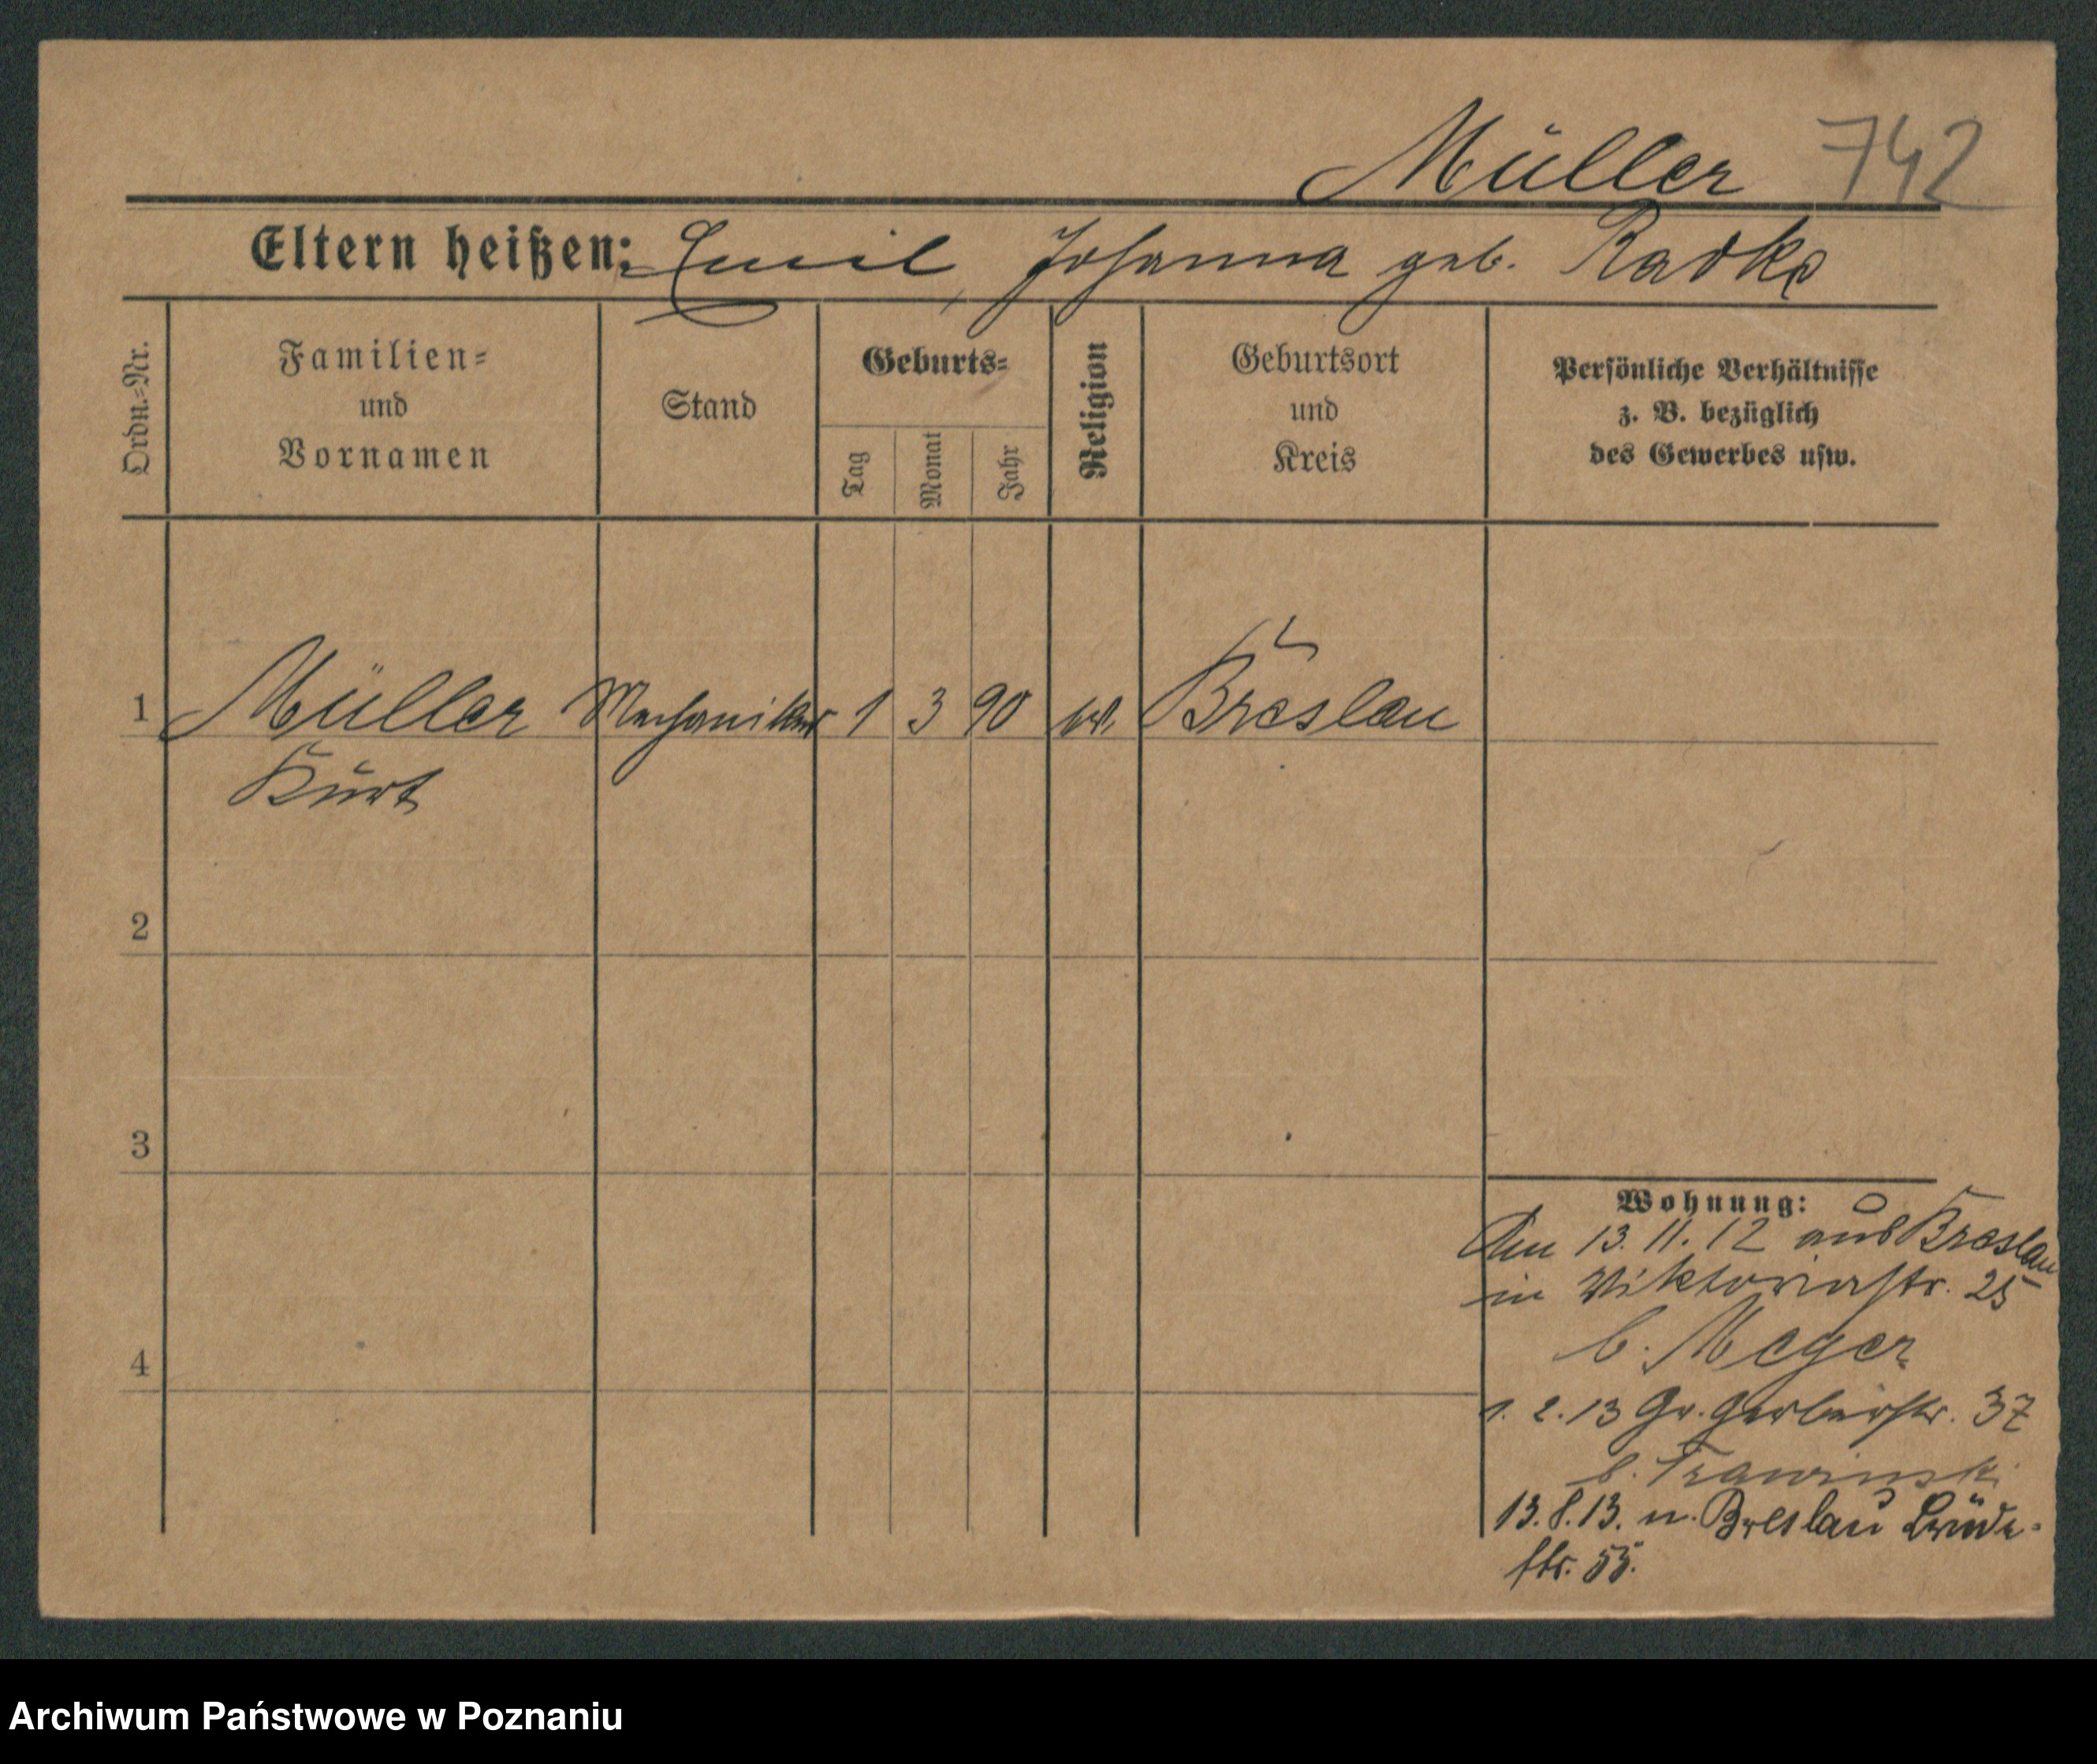 Müller 742
Eltern heißen: Emil, Johanna geb. Radke
Ordn.-Nr.
Familien-
und
Vornamen
Stand
Geburts-
Tag
Monat
Jahr
Religion
Geburtsort
und
Kreis
Persönliche Verhältnisse
z. B. bezüglich
des Gewerbes usw.
1 Müller Mechaniker 1 3 90 Breslau
Kurt
2
3
4
Wohnung:
13. 11. 12 aus Breslau
in Viktoriastr. 25
b. Meyer
1. 2. 13 Gr. Gerberstr. 37
b.
13. 8. 13. n. Breslau
str. 55.
Archiwum Państwowe w Poznaniu